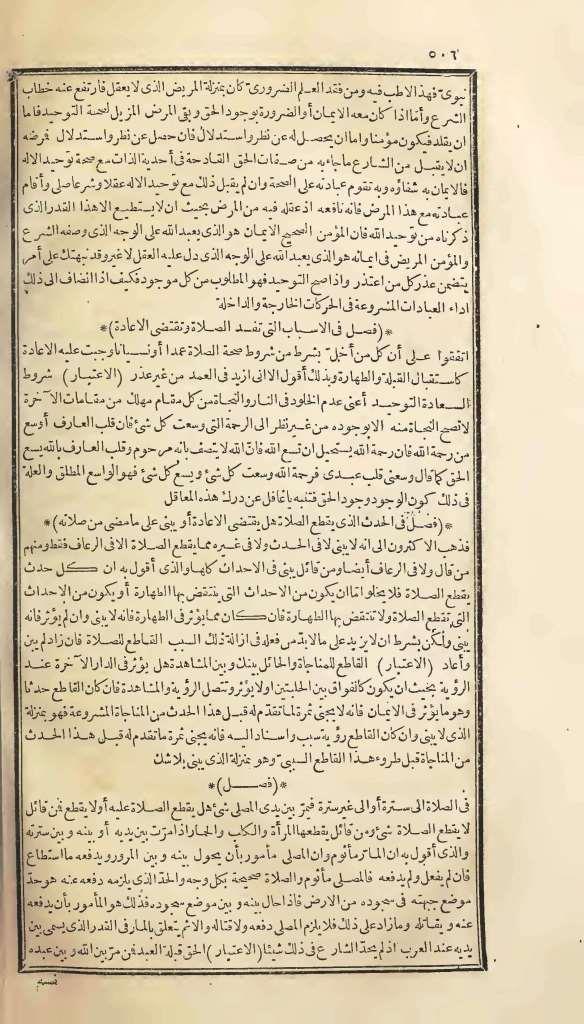 ٥٠٦
نبوىّ فهذا الاطب فيه ومن فقد العلم الضرورىّ كان بمنزلة المريض الذى لا يعقل فارتفع عنه خطاب
الشرع وأمّا اذا كان معه الايمان أو الضرورة بوجود الحق وبقى المرض المزيل لصحة التوحيد فاما
ان يقلد فيكون مؤمنا واما ان يحصل له عن نظر واستدلال فان حصل عن نظر واستدلال فرضه
ان لا يقبل من الشارع ما جاء به من صفات الحق القادحة فى أحدية الذات مع صحة توحيد الاله
فالايمان به شفاؤه وبه تقوم عبادته على الصحة وان لم يقبل ذلك مع توحيد الاله عقلا وشرعا صلى وأقام
عبادته مع هذا المرض فانه نافعه اذ عقله فيه من المرض بحيث ان لا يستطيع الا هذا القدر الذى
ذكرناه من توحيد الله فان المؤمن الصحيح الايمان هو الذى يعبد الله على الوجه الذى وصفه الشرع
والمؤمن المريض فى ايمانه هو الذى يعبد الله على الوجه الذى دل عليه العقل لا غير وقد نبهتك على أمر
يتضمن عذر كل من اعتذر واذا صح التوحيد فهو المطلوب من كل موجود فكيف اذا انضاف الى ذلك
اداء العبادات المشروعة فى الحركات الخارجة والداخلة
*(فصل فى الاسباب التى تفسد الصلاة وتقتضى الاعادة)*
اتفقوا على أن كل من أخل بشرط من شروط صحة الصلاة عمدا أو نسيانا وجبت عليه الاعادة
كاستقبال القبلة والطهارة وبذلك أقول الا انى ازيد فى العمد من غير عذر (الاعتبار) شروط
السعادة التوحيد أعنى عدم الخلود فى النار والنجاة من كل مقام مهلك من مقامات الآخرة
لا تصح النجاة منه الا بوجوده من غير نظر الى الرحمة التى وسعت كل شئ فان قلب العارف أوسع
من رحمة الله فان رحمة الله يستحيل ان تسع الله فان الله لا يتصف بانه مرحوم وقلب العارف بالله يسع
الحق كما قال وسعنى قلب عبدى فرحمة الله وسعت كل شئ ويسع كل شئ فهو الواسع المطلق والعلة
فى ذلك كون الوجود وجود الحق فتنبه يا غافل عن درك هذه المعاقل
*(فصل فى الحدث الذى يقطع الصلاة هل يقتضى الاعادة أو يبنى على ما مضى من صلاته)*
فذهب الاكثرون الى انه لا يبنى لا فى الحدث ولا فى غيره مما يقطع الصلاة الا فى الرعاف فقط ومنهم
من قال ولا فى الرعاف أيضا ومن قائل يبنى فى الاحداث كلها والذى أقول به ان كل حدث
يقطع الصلاة فلا يخلو اما ان يكون من الاحداث التى ينتقض بها الطهارة أو يكون من الاحداث
التى تقطع الصلاة ولا تنتقض بها الطهارة فان كان مما يؤثر فى الطهارة فانه لا يبنى وان لم يؤثر فانه
يبنى ولكن بشرط ان لا يزيد على ما لا بدّ من فعله فى ازالة ذلك السبب القاطع للصلاة فان زاد لم يبن
وأعاد (الاعتبار) القاطع للمناجاة والحائل بينك وبين المشاهدة هل يؤثر فى الدار الآخرة عند
الرؤية بحيث ان يكون كالفواق بين الحلبتين او لا يؤثر وتتصل الرؤية والمشاهدة فان كان القاطع حدثا
وهو ما يؤثر فى الايمان فانه لا يجنى ثمرة لما تقدّم له قبل هذا الحدث من المناجاة المشروعة فهو بمنزلة
الذى لا يبنى وان كان القاطع رؤية سبب واسناد اليه فانه يجنى ثمرة ما تقدم له قبل هذا الحدث
من المناجاة قبل طروء هذا القاطع السببىّ وهو بمنزلة الذى يبنى بلا شك
*(فصل)*
فى الصلاة الى سترة أو الى غير سترة فيمرّ بين يدى المصلى شئ هل يقطع الصلاة عليه أو لا يقطع فمن قائل
لا يقطع الصلاة شئ ومن قائل يقطعها المرأة والكلب والحمار اذا مرّت بين يديه أو بينه وبين سترته
والذى أقول به ان المارّ مأثوم وان المصلى مأمور بأن يحول بينه وبين المرور ويدفعه ما استطاع
فان لم يفعل ولم يدفعه فالمصلى مأثوم والصلاة صحيحة بكل وجه والحد الذى يلزمه دفعه عنه هو حدّ
موضع جبهته فى سجوده من الارض فاذا حال بينه وبين موضع سجوده فذلك هو المأمور بأن يدفعه
عنه و يقاتله وما زاد على ذلك فلا يلزم المصلى دفعه ولا قتاله والاثم يتعلق بالمار فى القدر الذى يسمى بين
يديه عند العرب اذ لم يحدّ الشارع فى ذلك شيئا (الاعتبار) الحق قبلة العبد فمن مرّ بين الله وبين عبده